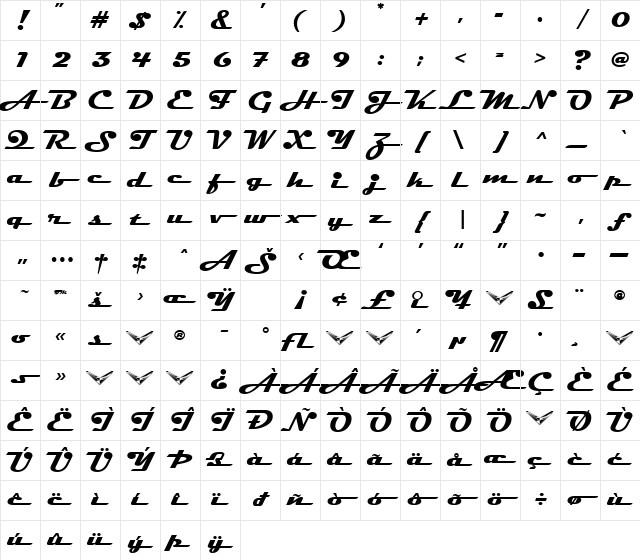 ! " # $ % & ' ( ) * + , - . / 0
1 2 3 4 5 6 7 8 9 : ; < = > ? @
A B C D E F G H I J K L M N O P
Q R S T U V W X Y Z [ \ ] ^ _ `
a b c d e f g h i j k l m n o p
q r s t u v w x y z { | } ~ , ƒ
„ … † ‡ ˆ A Š ‹ Œ ‘ ’ “ ” • – —
˜ ™ š › œ Ÿ ¡ ¢ £ Y S ¨ ©
« ® ¯ ° ´ ¶ ·
» ¿ À Á Â Ã Ä Å Æ Ç È É
Ê Ë Ì Í Î Ï Ð Ñ Ò Ó Ô Õ Ö Ø Ù
Ú Û Ü Ý Þ ß à á â ã ä å æ ç è é
ê ë ì í î ï đ ñ ò ó ô õ ö ÷ ø ù
ú û ü ý þ ÿ